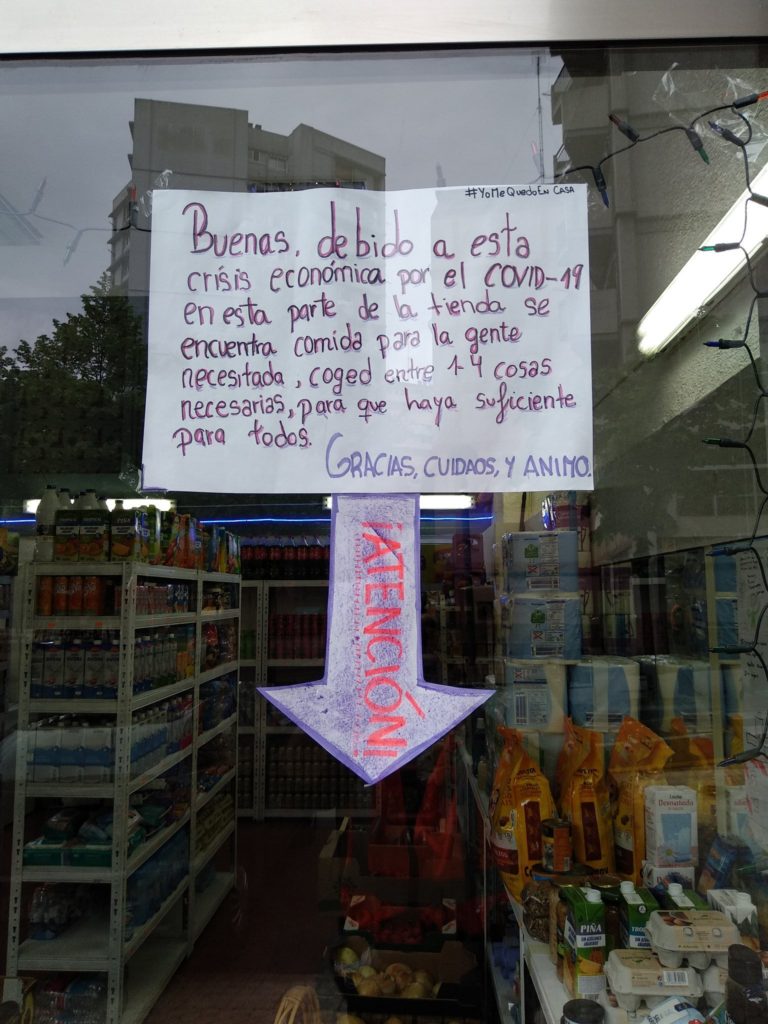 #YoMeQuedoEn CASA
Buenas, debido a esta
crisis económica por el COVID-19
en esta parte de la tienda se
encuentra comida para la gente
necesitada, coged entre 1-4 cosas
necesarias, para que haya suficiente
para todos.
GRACIAS, CUIDAOS, Y ANIMO.
¡ATENCIÓN!
Desnatada
PIÑA